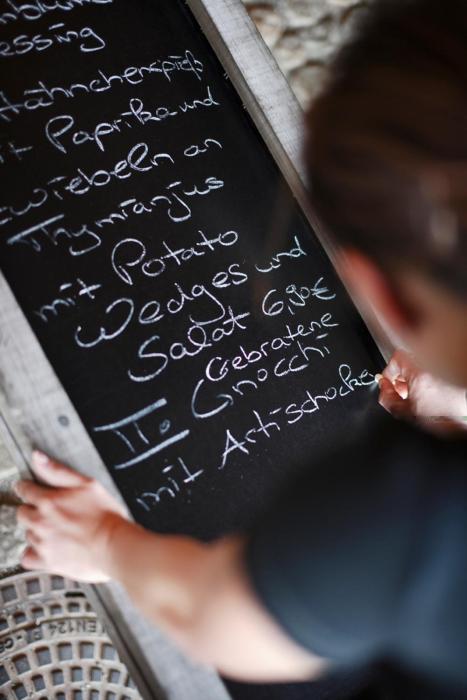 essing
Hähnchenspieß
it Paprika und
zwiebeln an
Thymianjus
mit Potato
Wedges und
Salat 6,90€
Gebratene
II. Gnocchi
mit Artischocke
EN124